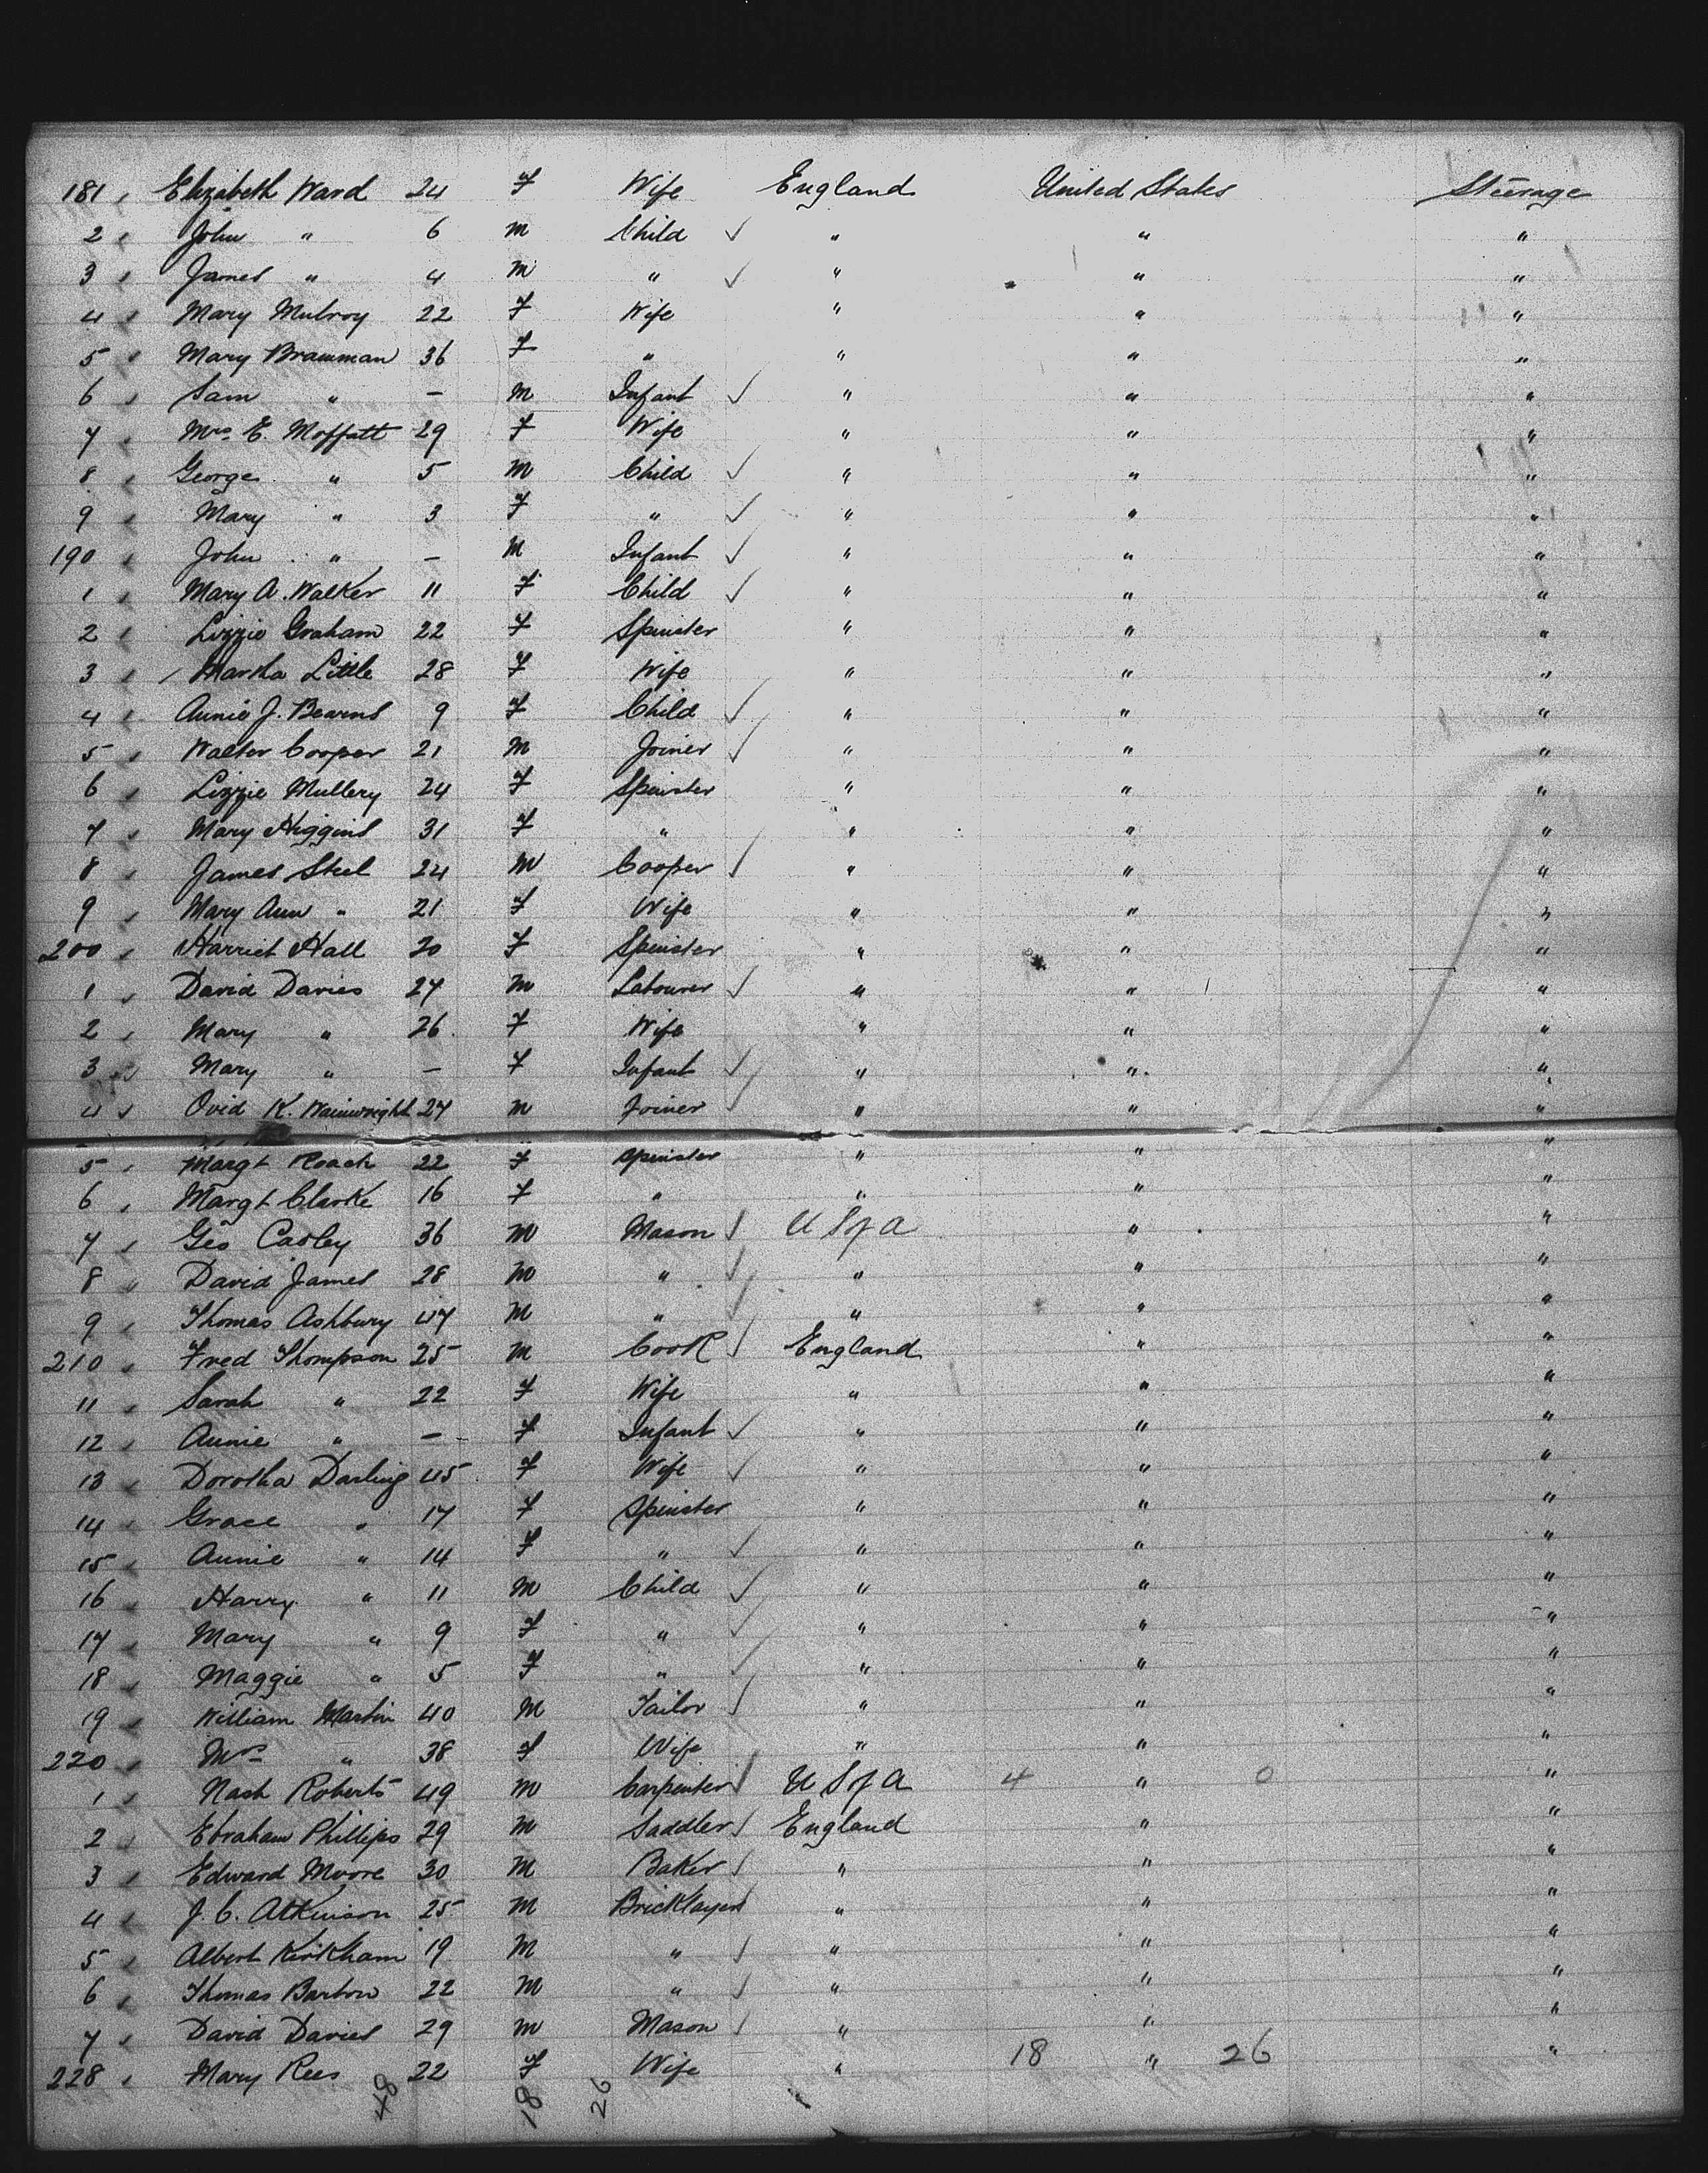 181 Elizabeth Ward 24 F Wife England United States Steerage
2 John " 6 M Child ✓ " " "
3 James " 4 M " ✓ " " "
4 Mary Mulroy 22 F Wife " " "
5 Mary Brauman 36 F " " " "
6 Sam " — M Infant ✓ " " "
7 Mrs E. Moffatt 29 F Wife " " "
8 George " 5 M Child ✓ " " "
9 Mary " 3 F " ✓ " " "
190 John " — M Infant ✓ " " "
1 Mary A. Walker 11 F Child ✓ " " "
2 Lizzie Graham 22 F Spinster " " "
3 Martha Little 28 F Wife " " "
4 Annie J. Bearns 9 F Child ✓ " " "
5 Walter Cooper 21 M Joiner ✓ " " "
6 Lizzie Mullery 24 F Spinster " " "
7 Mary Higgins 31 F " " " "
8 James Steel 24 M Cooper ✓ " " "
9 Mary Ann " 21 F Wife " " "
200 Harriet Hall 20 F Spinster " " "
1 David Davies 27 M Labourer ✓ " " "
2 Mary " 26 F Wife " " "
3 Mary " — F Infant ✓ " " "
4 Ovid K. Wainwright 27 M Joiner ✓ " " "
5 Margt Roach 22 F Spinster " " "
6 Margt Clarke 16 F " " " "
7 Geo Casley 36 M Mason ✓ U S of A " "
8 David James 28 M " ✓ " " "
9 Thomas Ashbury 47 M " ✓ " " "
210 Fred Thompson 25 M Cook ✓ England " "
11 Sarah " 22 F Wife " " "
12 Annie " — F Infant ✓ " " "
13 Dorotha Darling 45 F Wife ✓ " " "
14 Grace " 17 F Spinster " " "
15 Annie " 14 F " ✓ " " "
16 Harry " 11 M Child ✓ " " "
17 Mary " 9 F " ✓ " " "
18 Maggie " 5 F " ✓ " " "
19 William Martin 40 M Tailor ✓ " " "
220 Mrs " 38 F Wife " " "
1 Nash Roberts 49 M Carpenter ✓ U S of A 4 " 0 "
2 Ebraham Phillips 29 M Saddler ✓ England " "
3 Edward Moore 30 M Baker ✓ " " "
4 J. C. Atkinson 25 M Bricklayer ✓ " " "
5 Albert Kirkham 19 M " ✓ " " "
6 Thomas Barton 22 M " ✓ " " "
7 David Davies 29 M Mason ✓ " " "
228 Mary Rees 22 F Wife " 18 " 26 "
48 18 26